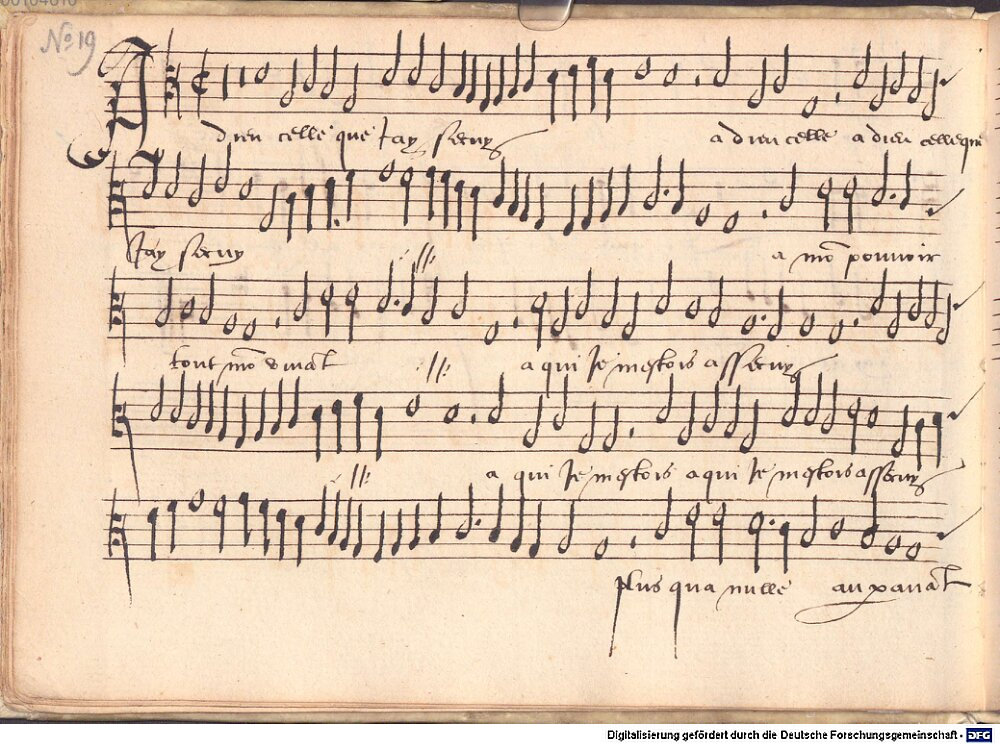 No 19
Adieu celle que Jay servy a dieu celle a dieu celle que
Jay servy a mō pouvoir
tout mō vivāt a qui Je mestois asservy
a qui Je mestois a qui Je mestois asservy
plus qua nulle
Digitalisierung gefördert durch die Deutsche Forschungsgemeinschaft - DFG